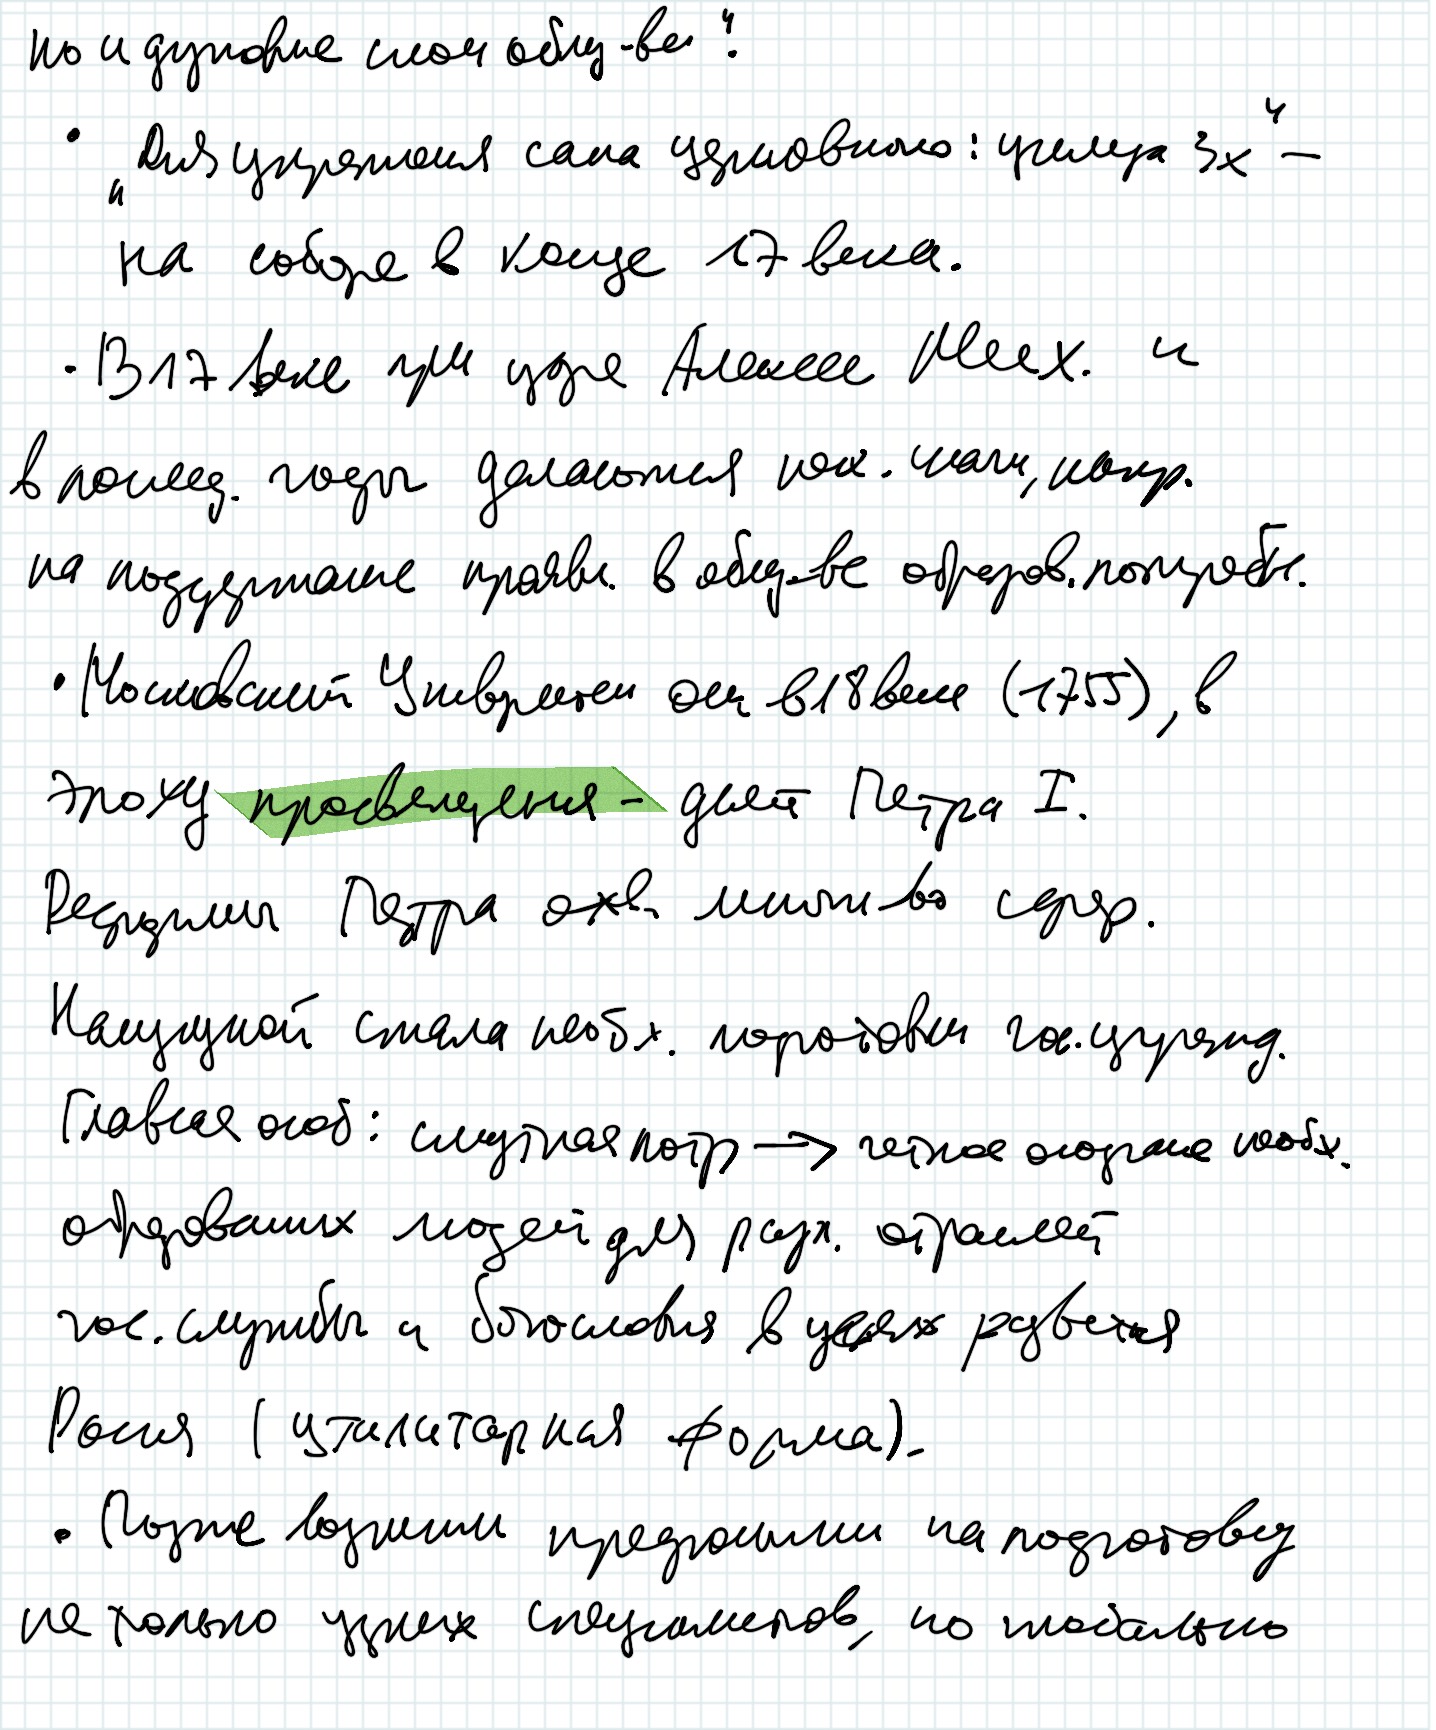 но и духовные слои общ-ва".
• "Для укрепления сана церковного: училища 3х" –
на соборе в конце 17 века.
• В 17 веке при царе Алексее Мих. и
в послед. годы делаются нек. шаги, напр.
на поддержание прояв. в общ-ве образов. потребн.
• Московский Университет осн в 18 веке (1755), в
эпоху просвещения – дит Петра I.
Реформы Петра охв. множ-во сфер.
Насущной стала необх. подготовки гос. учрежд.
Главная особ: смутная потр → четкое осознание необх.
образованных людей для разл. отраслей
гос. службы и богословия в целях развития
России (утилитарная форма).
• Позже возникли предпосылки на подготовку
не только узких специалистов, но глобально